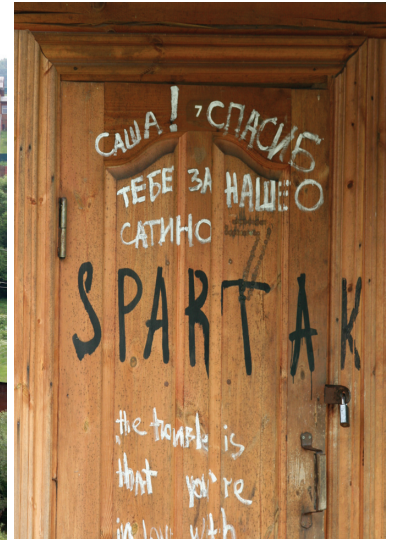 САША! СПАСИБО
ТЕБЕ ЗА НАШЕ
САТИНО
SPARTAK
the trouble is
that you're
in love with